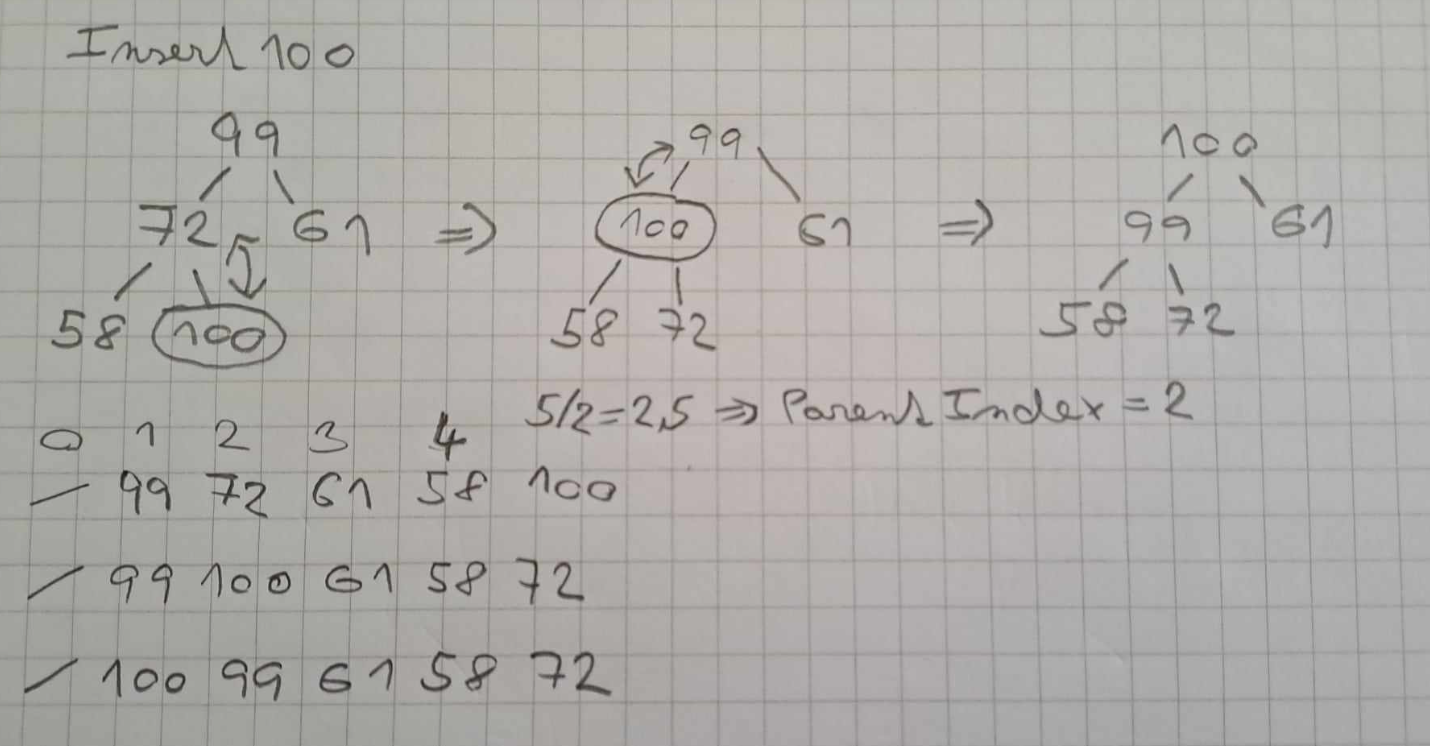 Insert 100
99 99 100
72 61 ⇒ 100 61 ⇒ 99 61
58 100 58 72 58 72
5/2=2,5 ⇒ Parent Index = 2
0 1 2 3 4
— 99 72 61 58 100
— 99 100 61 58 72
— 100 99 61 58 72